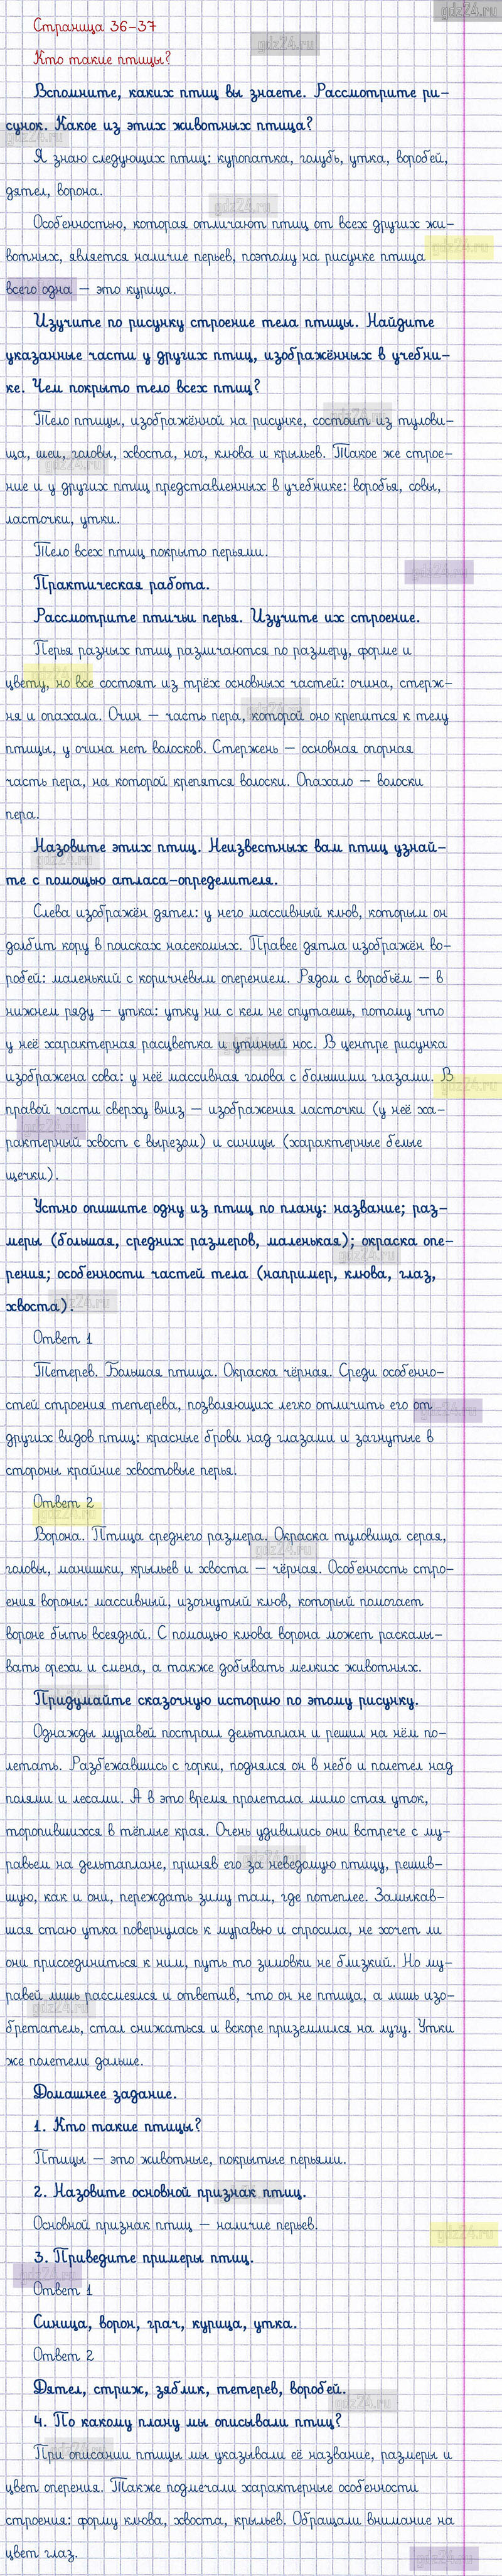 gdz24.ru
Страница 36-37
gdz24.ru
Кто такие птицы?
Вспомните, каких птиц вы знаете. Рассмотрите ри-
сунок. Какое из этих животных птица?
gdz24.ru
Я знаю следующих птиц: куропатка, голубь, утка, воробей,
дятел, ворона.
gdz24.ru
Особенностью, которая отличают птиц от всех других жи-
вотных, является наличие перьев, поэтому на рисунке птица
gdz24.ru
всего одна – это курица.
Изучите по рисунку строение тела птицы. Найдите
указанные части у других птиц, изображённых в учебни-
ке. Чем покрыто тело всех птиц?
Тело птицы, изображённой на рисунке, состоит из тулови-
ща, шеи, головы, хвоста, ног, клюва и крыльев. Такое же строе-
gdz24.ru
ние и у других птиц представленных в учебнике: воробья, совы,
ласточки, утки.
Тело всех птиц покрыто перьями.
gdz24.ru
Практическая работа.
Рассмотрите птичьи перья. Изучите их строение.
Перья разных птиц различаются по размеру, форме и
цвету, но все состоят из трёх основных частей: очина, стерж-
ня и опахала. Очин – часть пера, которой оно крепится к телу
gdz24.ru
птицы, у очина нет волосков. Стержень – основная опорная
часть пера, на которой крепятся волоски. Опахало – волоски
пера.
Назовите этих птиц. Неизвестных вам птиц узнай-
gdz24.ru
те с помощью атласа-определителя.
Слева изображён дятел: у него массивный клюв, которым он
долбит кору в поисках насекомых. Правее дятла изображён во-
робей: маленький с коричневым оперением. Рядом с воробьём – в
нижнем ряду – утка: утку ни с кем не спутаешь, потому что
у неё характерная расцветка и утиный нос. В центре рисунка
изображена сова: у неё массивная голова с большими глазами. В
gdz24.ru
правой части сверху вниз – изображения ласточки (у неё ха-
gdz24.ru
рактерный хвост с вырезом) и синицы (характерные белые
щечки).
Устно опишите одну из птиц по плану: название; раз-
меры (большая, средних размеров, маленькая); окраска опе-
gdz24.ru
рения; особенности частей тела (например, клюва, глаз,
хвоста).
gdz24.ru
Ответ 1
Тетерев. Большая птица. Окраска чёрная. Среди особенно-
стей строения тетерева, позволяющих легко отличить его от
gdz24.ru
других видов птиц: красные брови над глазами и загнутые в
стороны крайние хвостовые перья.
Ответ 2
gdz24.ru
Ворона. Птица среднего размера. Окраска туловища серая,
gdz24.ru
головы, манишки, крыльев и хвоста – чёрная. Особенность стро-
ения вороны: массивный, изогнутый клюв, который помогает
вороне быть всеядной. С помощью клюва ворона может раскалы-
вать орехи и семена, а также добывать мелких животных.
Придумайте сказочную историю по этому рисунку.
Однажды муравей построил дельтаплан и решил на нём по-
летать. Разбежавшись с горки, поднялся он в небо и полетел над
полями и лесами. А в это время пролетала мимо стая уток,
торопившихся в тёплые края. Очень удивились они встрече с му-
равьем на дельтаплане, приняв его за неведомую птицу, решив-
шую, как и они, переждать зиму там, где потеплее. Замыкав-
шая стаю утка повернулась к муравью и спросила, не хочет ли
они присоединиться к ним, путь то зимовки не близкий. Но му-
равей лишь рассмеялся и ответив, что он не птица, а лишь изо-
gdz24.ru
бретатель, стал снижаться и вскоре приземлился на лугу. Утки
же полетели дальше.
Домашнее задание.
1. Кто такие птицы?
Птицы – это животные, покрытые перьями.
2. Назовите основной признак птиц.
Основной признак птиц – наличие перьев.
gdz24.ru
3. Приведите примеры птиц.
gdz24.ru
Ответ 1
Синица, ворон, грач, курица, утка.
Ответ 2
Дятел, стриж, зяблик, тетерев, воробей.
gdz24.ru
4. По какому плану мы описывали птиц?
При описании птицы мы указывали её название, размеры и
цвет оперения. Также подмечали характерные особенности
строения: форму клюва, хвоста, крыльев. Обращали внимание на
цвет глаз.
gdz24.ru